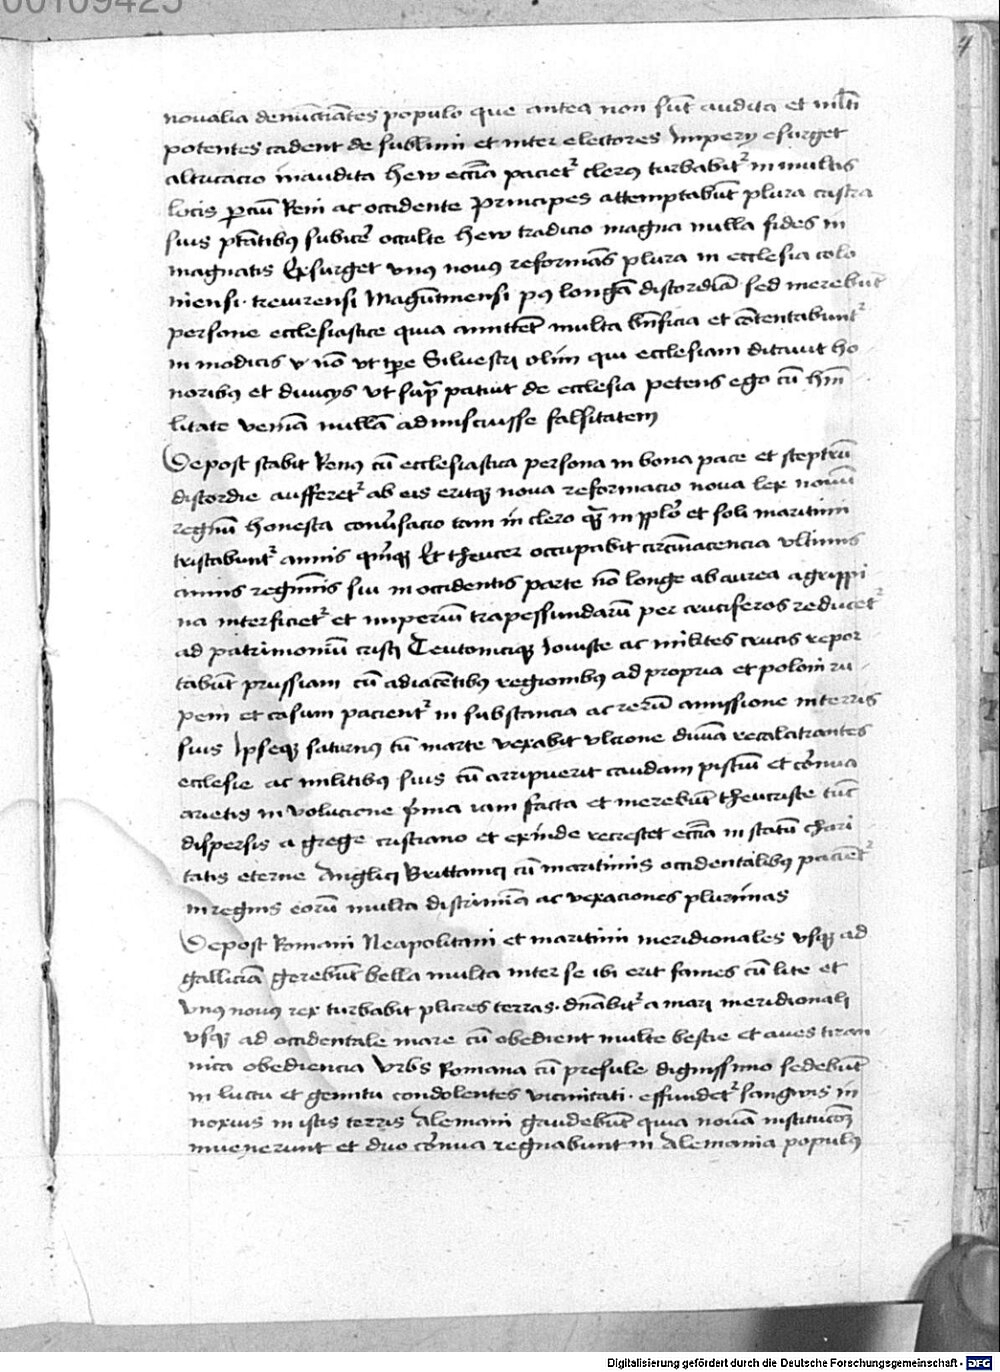 00109425
4
noualia denūctiātes populo que antea non sūt audita et mlti
potentes cadent de sublimi et inter electores Impery exurget
altricacio inaudita hew eccīa paciet² clerus turbabit² in multis
locis ꝑciū Reni ac occidente Principes attemptabūt plura castra
suis ptātibꝰ subicē occulte hew tradicio magna nulla fides in
magnatis Exsurget vnꝰ nouꝰ reformās plura in ecclesia colo
niensi. treuirensi Magūtinensi pꝰ longā discordiā sed merebūt
persone ecclesiastice quia amittēt multa bn̄ficia et cōtentabunt²
in modicis nō vt tp̄e Siluestri olim qui ecclesiam ditauit ho
noribꝰ et diuicys vt sup̄ patiut de ecclesia petens ego cū hm̄
litate veniā nullā admiscuisse falsitatem
Depost stabit Renꝰ cū ecclesiastica persona in bona pace et sceptrū
discordie aufferet² ab eis eritqꝫ noua reformacio noua lex nouū
regnū honesta conūsacio tam in clero qꝫ in pplo et soli maritimi
tristabunt² annis qnqꝫ Et theucer occupabit circūiacencia vltimis
annis regimīs sui in occidentis parte nō longe ab aurea agrippi
na interficiet² et imperiū trapessundarū per cruciferos reducet²
ad patrimoniū cristi Teutoniciqꝫ Iouiste ac milites crucis repor
tabūt prussiam cū adiacētibꝰ regionibꝰ ad propria et poloni ru
pem et casum pacient² in substancia ac rerū amissione in terris
suis Ipseqꝫ saturnꝰ cū marte vexabit vlcione diuīa recalcitrantes
ecclesie ac militibꝰ suis cū arripuerit caudam pisciū et cōrnua
arietis in volucione p̄ma iam facta et merebūt theucriste tūc
dispersis a grege cristiano et exinde recrescet eccīa in statū chari
tatis eterne Anglici Brittanici cū maritimis occidentalibꝰ paciēt²
in regnis eorū multa discrimīa ac vexaciones plurimas
Depost Romani Neapolitani et maritimi meridionales vsqꝫ ad
galliciā gerebūt bella multa inter se ibi erit fames cū lite et
vnꝰ nouꝰ rex turbabit plures terras. dn̄abit² a mari meridionali
vsqꝫ ad occidentale mare cū obedient multe bestie et aues tiran
nica obediencia Vrbs Romana cū presule dignissimo sedebūt
in luctu et gemitu condolentes vicinitati. effundet² sangwis in
noxius in istis terris Alemani gaudebūt quia nouā institucōꝫ
inuenerunt et duo cōrnua regnabunt in Alemania populꝰ
Digitalisierung gefördert durch die Deutsche Forschungsgemeinschaft - DFG